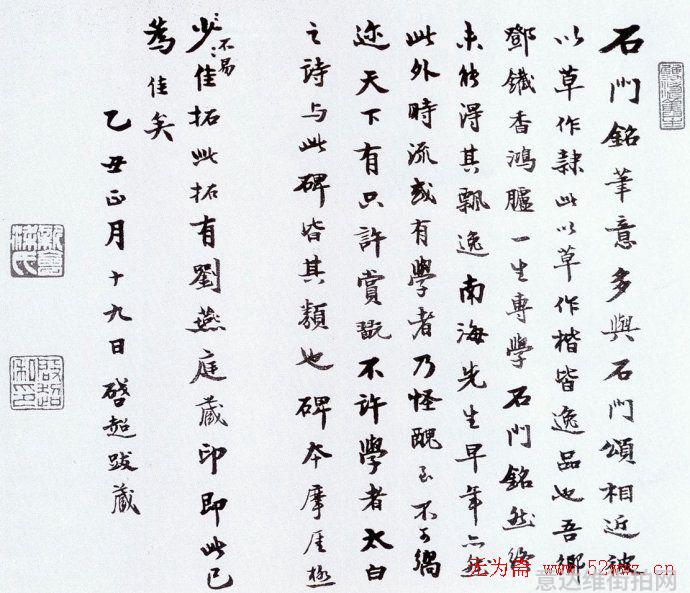 石門銘筆意多與石門頌相近彼
以草作隸此以草作楷皆逸品也吾鄉
鄧鐵香鴻臚一生專學石門銘然終
未能得其飄逸南海先生早年亦然
此外時流或有學者乃怪醜至不可嚮
迩天下有只許賞翫不許學者太白
之詩與此碑皆其類也碑本摩厓極
少佳拓此拓有劉燕庭藏印即此已
不易
為佳矣
乙丑正月十九日啓超跋藏
新會梁氏
啟超私印
无为斋
意达维街拍网